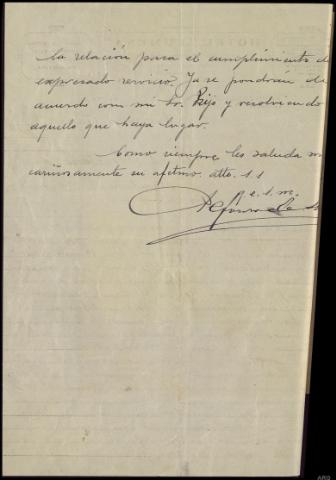 la relación para el cumplimiento d
expresado servicio. Ya se pondrán de
acuerdo con mi Sr. Hijo y resolviendo
aquello que haya lugar.
Como siempre les saluda
cariñosamente su afctmo. atto. s s
q. e. s. m.